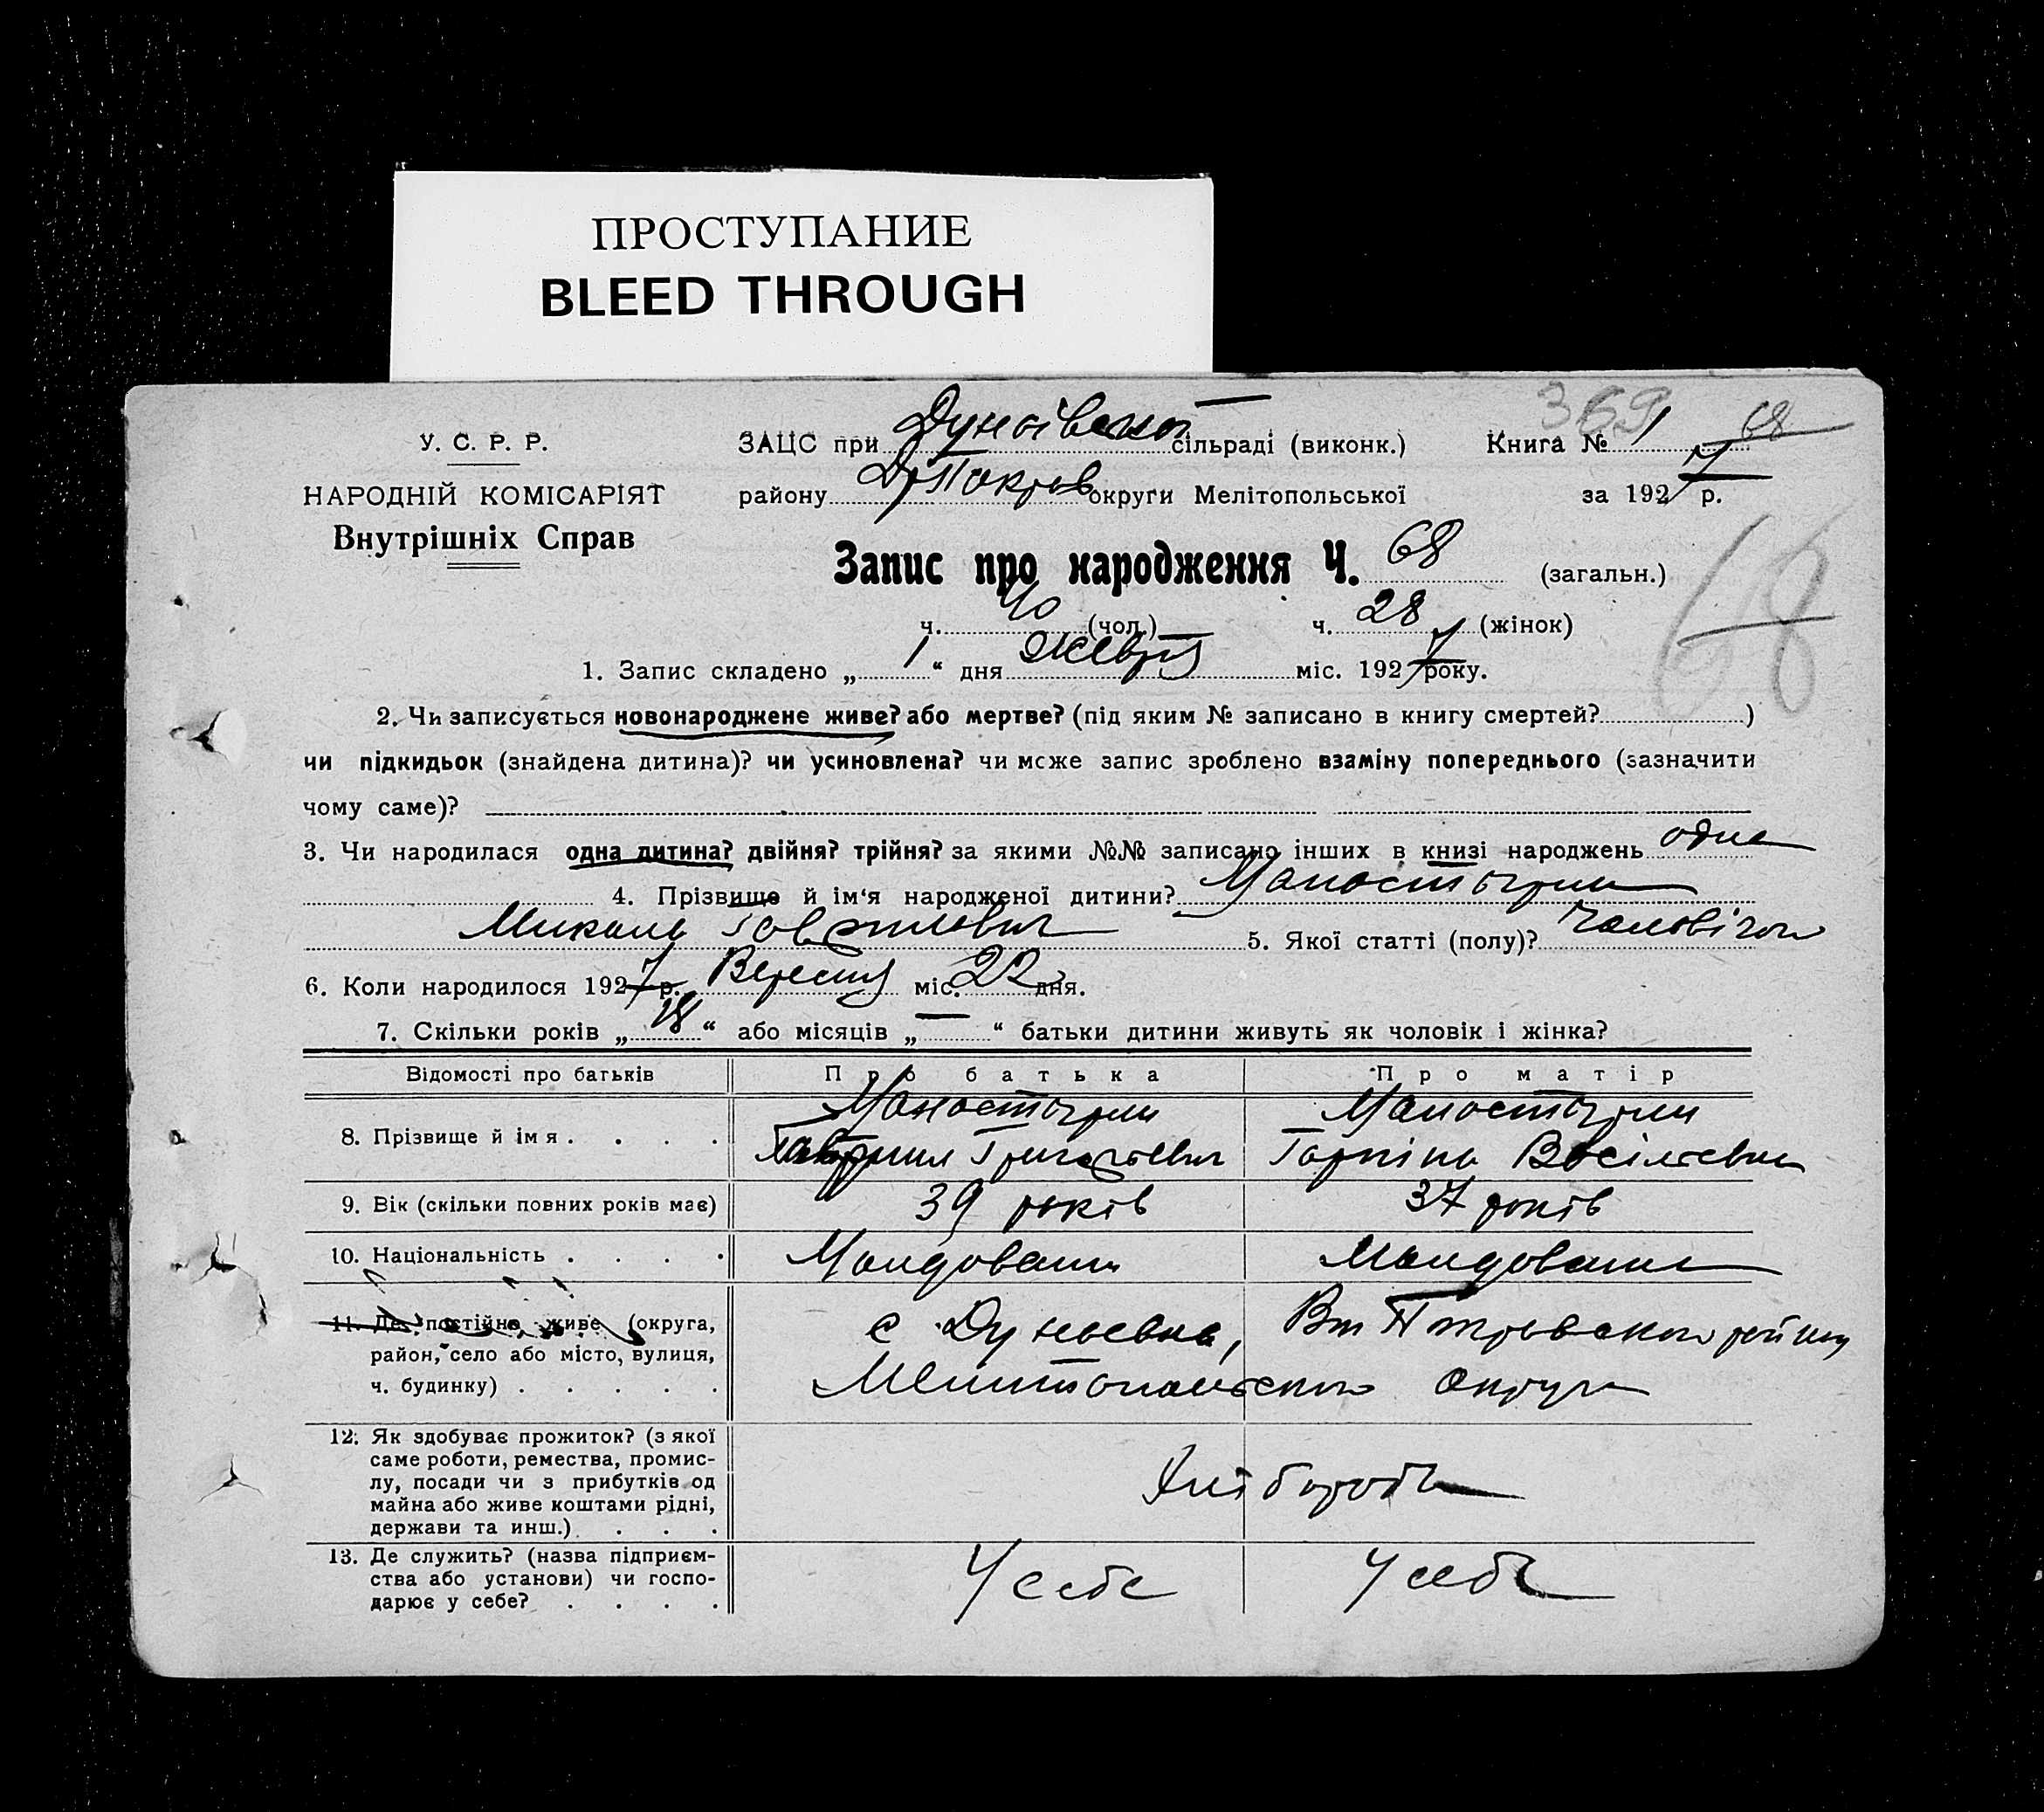 ПРОСТУПАНИЕ
BLEED THROUGH
369
У. С. Р. Р.
ЗАЦС при Дунаівської сільраді (виконк.)
Книга № 1 68
НАРОДНІЙ КОМІСАРІЯТ
району округи Мелітопольської
за 1927 р.
Внутрішніх Справ
Запис про народження Ч. 68 (загальн.)
ч. 40 (чол.) ч. 28 (жінок)
68
1. Запис складено „ 1 “ дня Жевтня міс. 1927 року.
2. Чи записується новонароджене живе? або мертве? (під яким № записано в книгу смертей? )
чи підкидьок (знайдена дитина)? чи усиновлена? чи може запис зроблено взаміну попереднього (зазначити
чому саме)?
3. Чи народилася одна дитина? двійня? трійня? за якими №№ записано інших в книзі народжень одна
4. Прізвище й ім‘я народженої дитини?
Микола Гаврилович 5. Якої статті (полу)?
6. Коли народилося 1927 р. Вересня міс. 22 дня.
7. Скільки років „ 18 “ або місяців „ — “ батьки дитини живуть як чоловік і жінка?
Відомості про батьків
Про батька
Про матір
8. Прізвище й ім я . . . .
Гаврило Григорьевич
Горпіна Васільевна
9. Вік (скільки повних років має)
39 років
37 років
10. Національність . . . .
Молдовани
Молдовани
11. Де постійно живе (округа,
район, село або місто, вулиця,
ч. будинку) . . . . .
с Дунаевка, району
Мелитопольського Округи
12. Як здобуває прожиток? (з якої
саме роботи, ремества, промис-
лу, посади чи з прибутків од
майна або живе коштами рідні,
держави та инш.) . . .
Хлібороби
13. Де служить? (назва підприєм-
ства або установи) чи госпо-
дарює у себе? . . . .
У себе
У себе